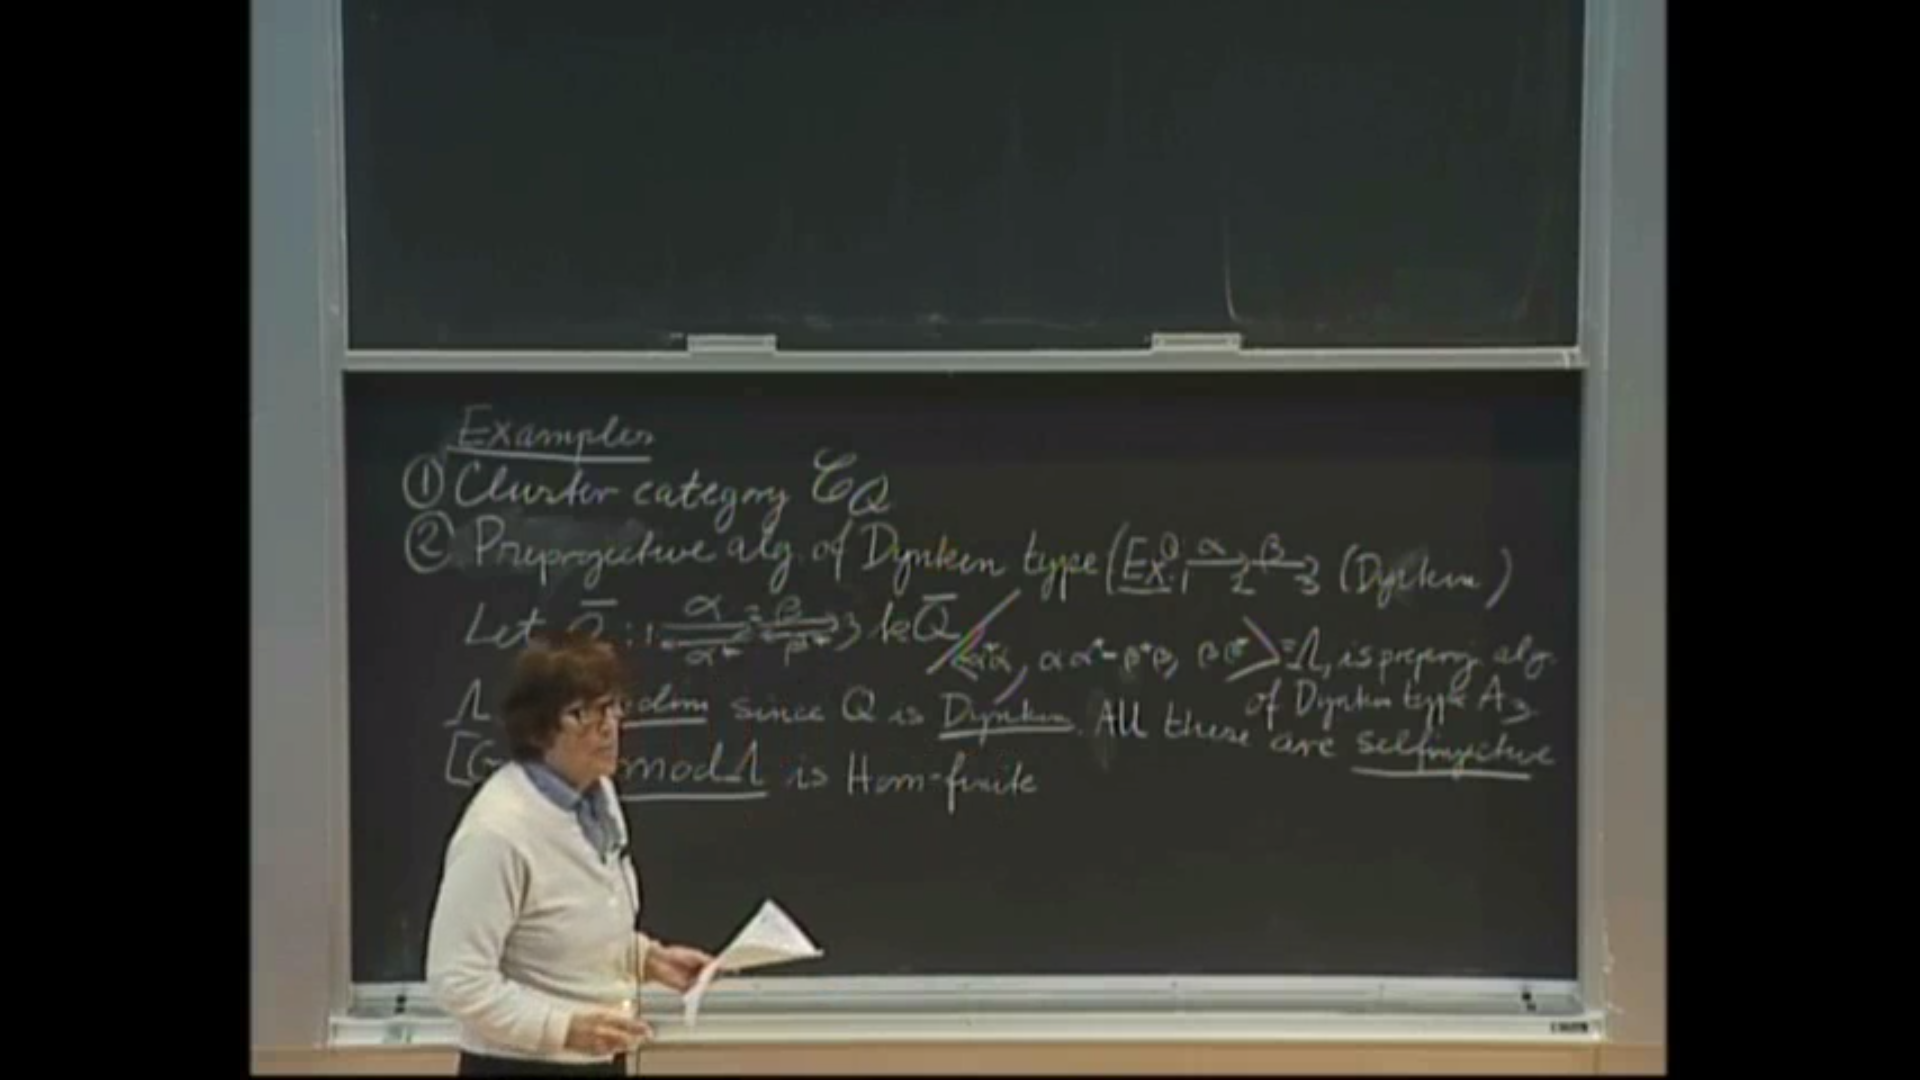 Examples
① Cluster category 𝒞_Q
② Preprojective alg. of Dynkin type (Ex. Q: 1 →α 2 →β 3 (Dynkin)
Let Q̄ : 1 ⇄ α α* 2 ⇄ β β* 3 kQ̄/<α*α, αα*-β*β, ββ*> = Λ, is preproj. alg.
of Dynkin type A₃
Λ dim since Q is Dynkin. All these are selfinjective
[G mod Λ is Hom-finite